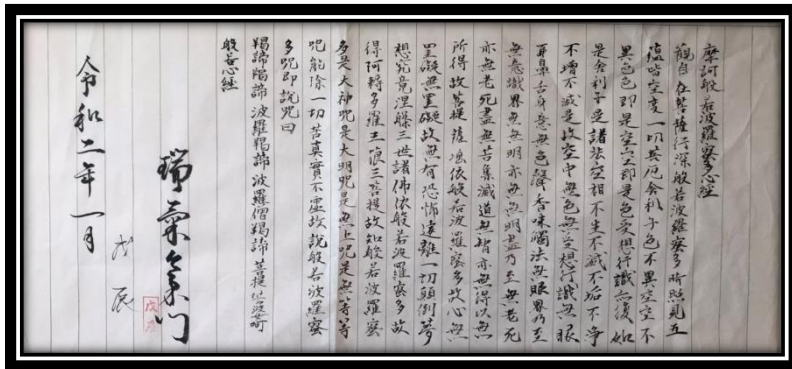 摩訶般若波羅蜜多心經
觀自在菩薩行深般若波羅蜜多時照見五
蘊皆空度一切苦厄舍利子色不異空空不
異色色即是空空即是色受想行識亦復如
是舍利子是諸法空相不生不滅不垢不淨
不增不減是故空中無色無受想行識無眼
耳鼻舌身意無色聲香味觸法無眼界乃至
無意識界無無明亦無無明盡乃至無老死
亦無老死盡無苦集滅道無智亦無得以無
所得故菩提薩埵依般若波羅蜜多故心無
罣礙無罣礙故無有恐怖遠離一切顛倒夢
想究竟涅槃三世諸佛依般若波羅蜜多故
得阿耨多羅三藐三菩提故知般若波羅蜜
多是大神咒是大明咒是無上咒是無等等
咒能除一切苦真實不虛故說般若波羅蜜
多咒即說咒曰
揭諦揭諦 波羅揭諦 波羅僧揭諦 菩提
般若心經
瑞氣
門
戊辰
令和二年一月